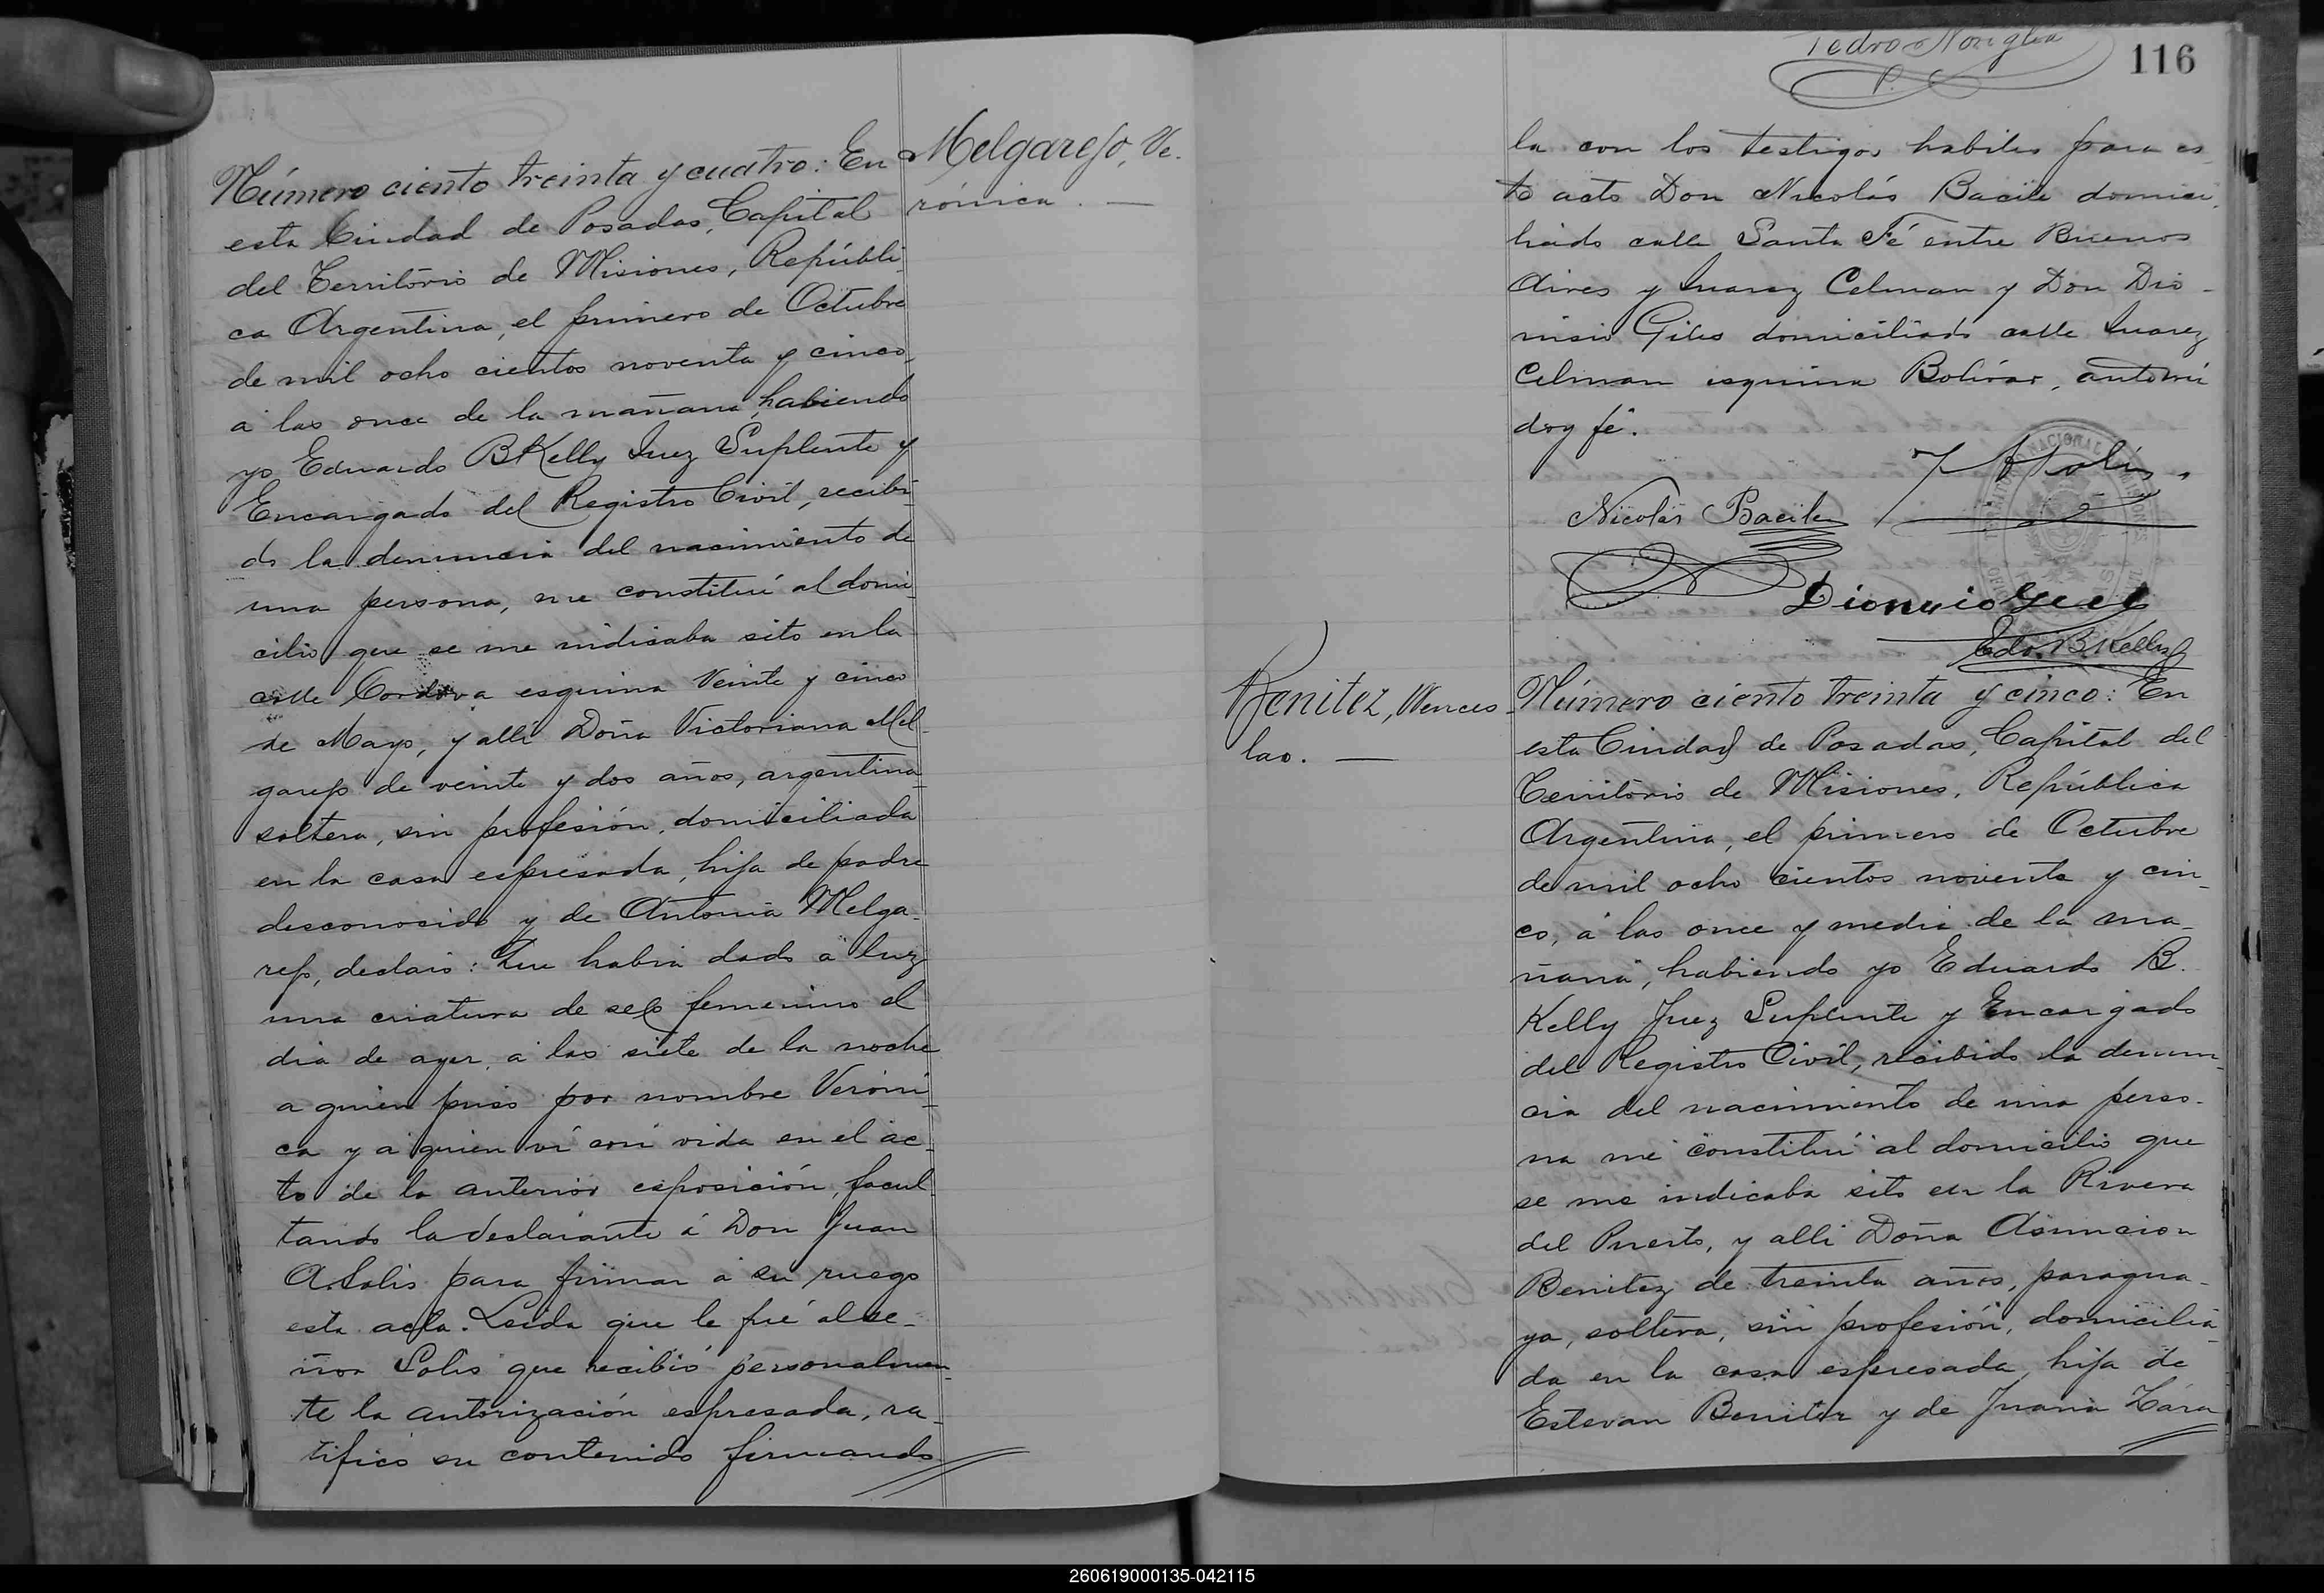 Número ciento treinta y cuatro: En
esta Ciudad de Posadas, Capital
del Territorio de Misiones, Repúbli-
ca Argentina, el primero de Octubre
de mil ocho cientos noventa y cinco,
á las once de la mañana, habiendo
yo Eduardo B Kelly Juez Suplente y
Encargado del Registro Civil, recibi-
do la denuncia del nacimiento de
una persona, me constituí al domi-
cilio que se me indicaba sito en la
calle Cordova esquina Veinte y cinco
de Mayo, y allí Doña Victoriana Mel-
garejo de veinte y dos años, argentina
soltera, sin profesión, domiciliada
en la casa espresada, hija de padre
desconocido y de Antonia Melga-
rejo, declaró: Que habia dado á luz
una criatura de sexo femenino el
dia de ayer á las siete de la noche
a quien puso por nombre Veróni-
ca y a quien ví con vida en el ac-
to de la anterior esposición, facul-
tando la declarante á Don Juan
A. Solis para firmar á su ruego
esta acta. Leida que le fué al se-
ñor Solis que recibió personalmen-
te la autorización espresada, ra-
tificó su contenido firmando
Melgarejo, Ve-
rónica. —
116
la con los testigos habiles para es-
te acto Don Nicolás Bacile domici-
liado calle Santa Fé entre Buenos
Aires y Juarez Celman y Don Dio-
nisio Giles domiciliado calle Juarez
Celman esquina Bolívar, ante mi
doy fé.
Nicolás Bacile
Edo. B. Kelly
Benitez, Wences-
lao. —
Número ciento treinta y cinco: En
esta Ciudad de Posadas, Capital del
Territorio de Misiones, República
Argentina, el primero de Octubre
de mil ocho cientos noventa y cin-
co, á las once y media de la ma-
ñana, habiendo yo Eduardo B.
Kelly Juez Suplente y Encargado
del Registro Civil, recibido la denun-
cia del nacimiento de una perso-
na me constituí al domicilio que
se me indicaba sito en la Rivera
del Puerto, y alli Doña Asuncion
Benitez de treinta años, paragua-
ya, soltera, sin profesión, domicilia-
da en la casa espresada, hija de
Estevan Benitez y de Juana Zára
260619000135-042115